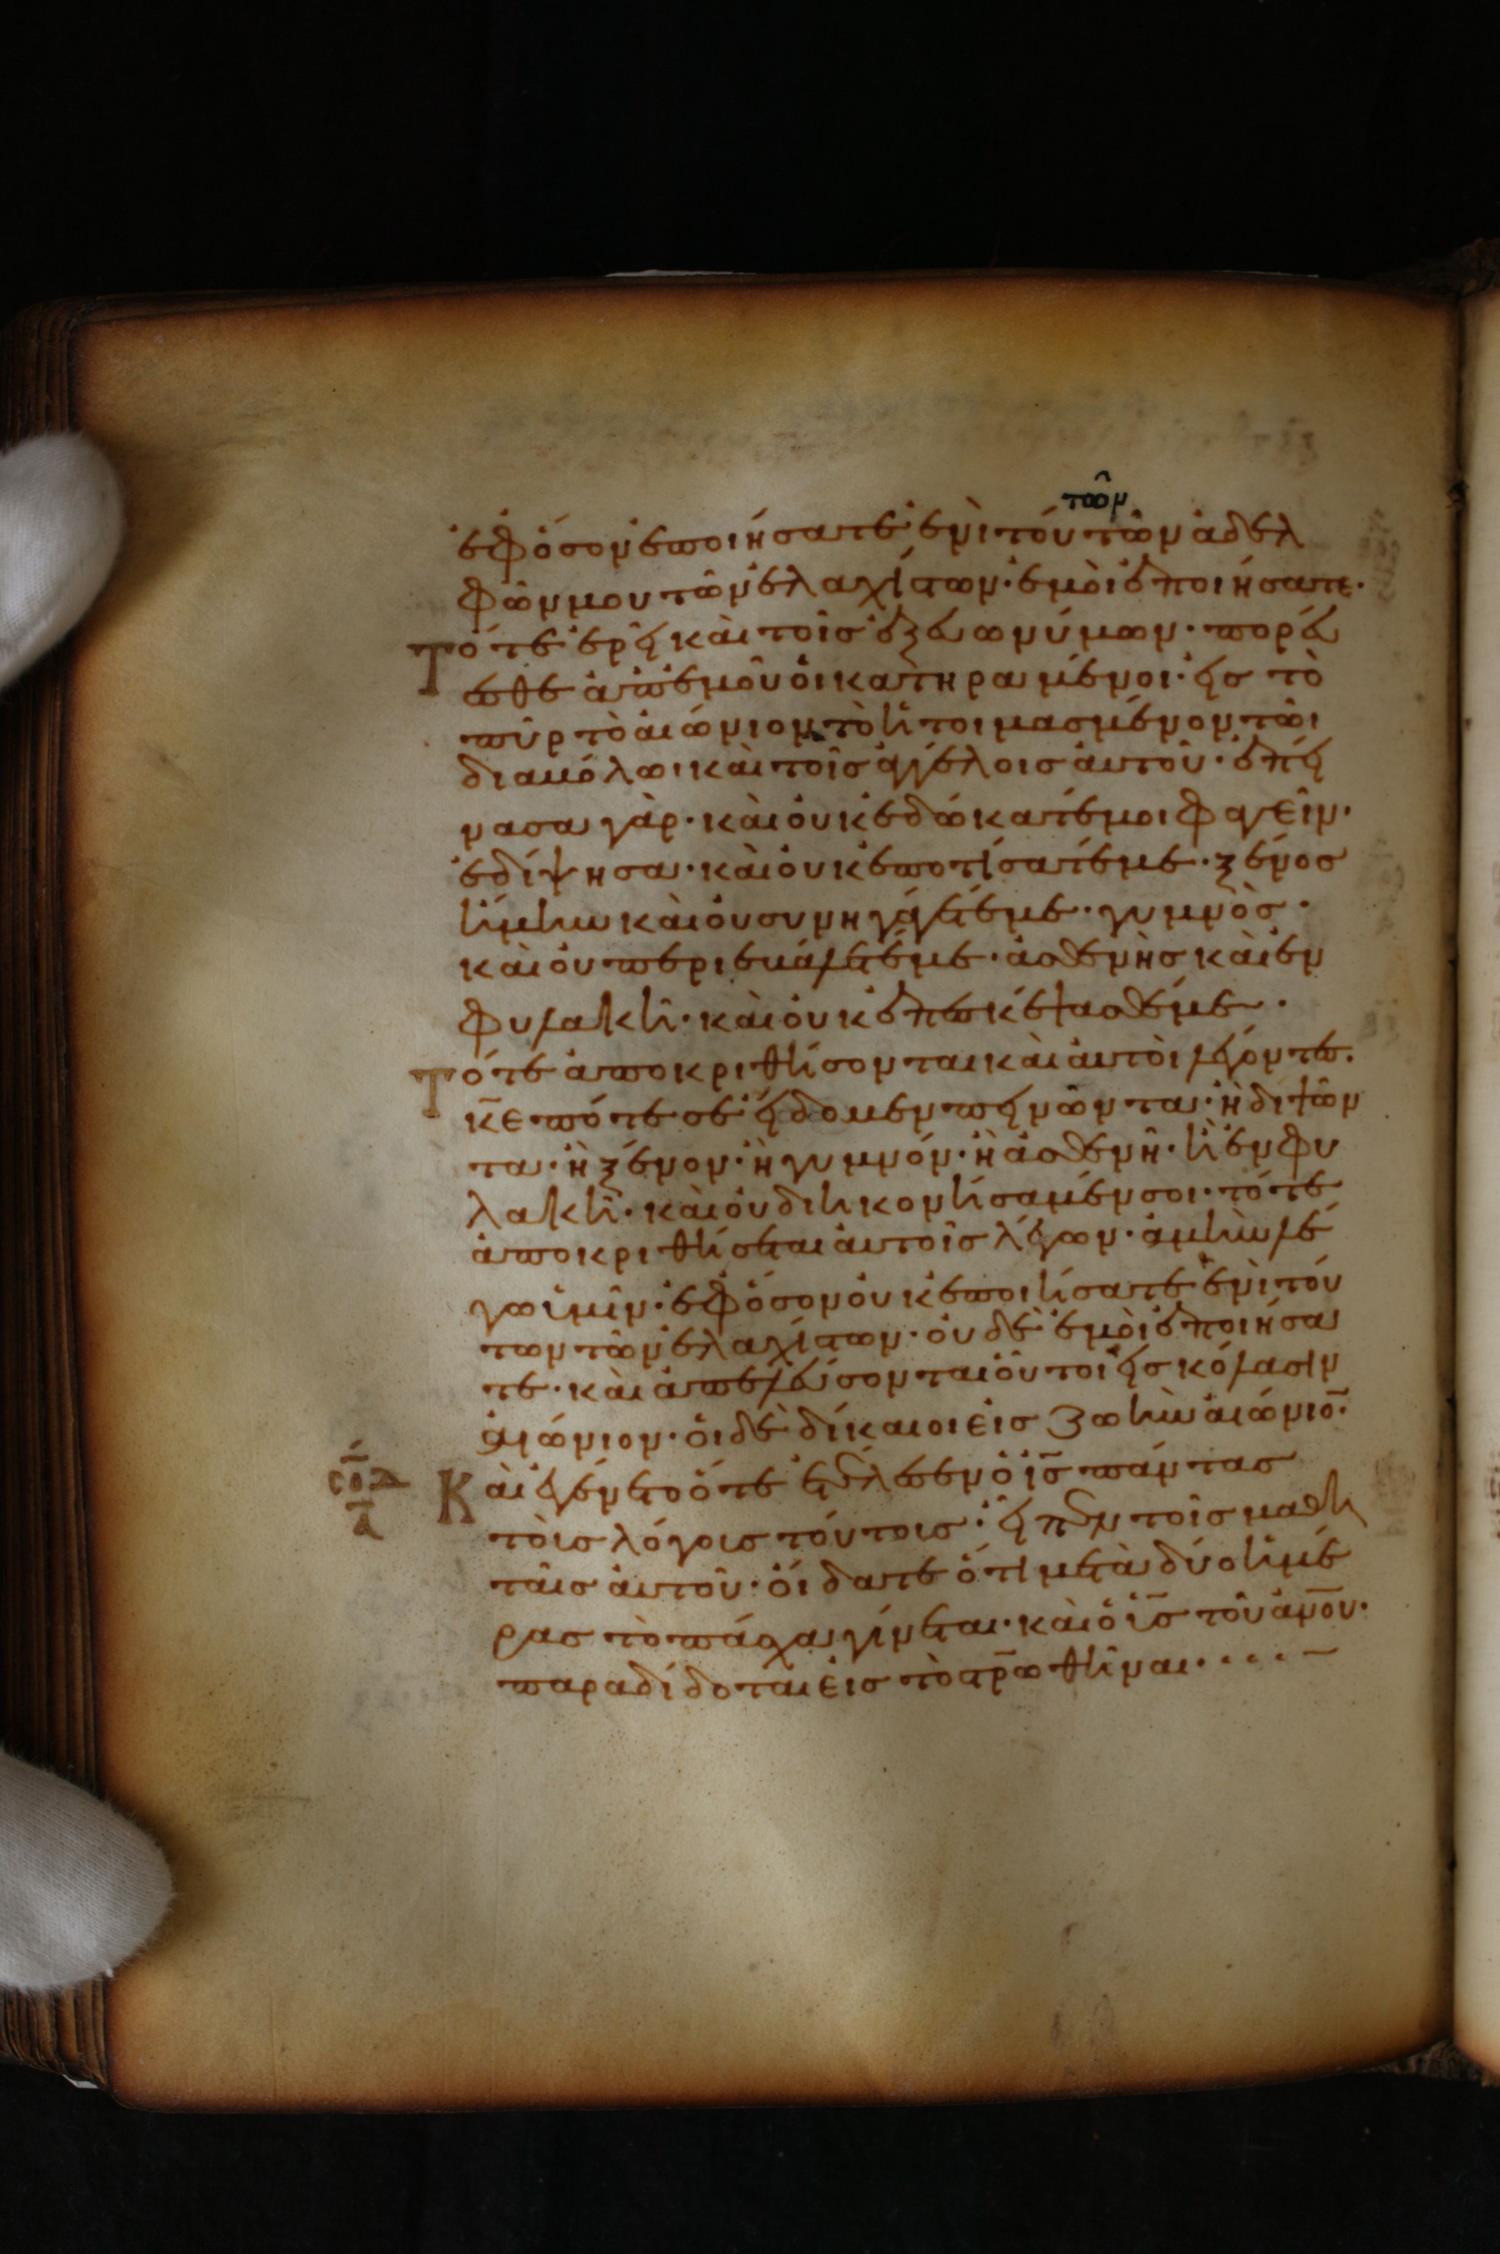 τῶν
ἐφ ὅσον ἐποιήσατε ἑνὶ τού τῶν ἀδελ
φῶν μου τῶν ἐλαχίστων· ἐμοὶ ἐποιήσατε·
Τότε ἐρεῖ καὶ τοῖσ ἐξ εὐωνύμων· πορεύ
εσθε ἀπ ἐμοῦ οἱ κατηραμένοι· εἰσ τὸ
πῦρ τὸ αἰώνιον τὸ ἡτοιμασμένον τῶι
διαβόλωι καὶ τοῖσ ἀγγέλοισ αὐτοῦ· ἐπεί
νασα γὰρ· καὶ οὐκ ἐδώκατέ μοι φαγεῖν·
ἐδίψησα· καὶ οὐκ ἐποτίσατέ με· ξένοσ
ἤμην καὶ οὐ συνηγάγετέ με· γυμνὸσ·
καὶ οὐ περιεβάλετέ με· ἀσθενὴσ καὶ ἐν
φυλακῆ· καὶ οὐκ ἐπεσκέψασθέ με·
Τότε ἀποκριθήσονται καὶ αὐτοὶ λέγοντε·
κ̅ε̅· πότε σὲ εἴδομεν πεινῶντα· ἢ διψῶν
τα· ἢ ξένον· ἢ γυμνόν· ἢ ἀσθενῆ· ἢ ἐν φυ
λακῆ· καὶ οὐ διηκονήσαμέν σοι· τότε
ἀποκριθήσεται αὐτοῖσ λέγων· ἀμὴν λέ
γω ὑμῖν· ἐφ ὅσον οὐκ ἐποιήσατε ἑνὶ τού
των τῶν ἐλαχίστων· οὐδὲ ἐμοὶ ἐποιήσα
τε· καὶ ἀπελεύσονται οὗτοι εἰσ κόλασιν
αἰώνιον· οἱ δὲ δίκαιοι εἰσ ζωὴν αἰώνιο̅·
σ̅ο̅δ
α̅
Καὶ ἐγένετο ὅτε ἐτέλεσεν ὁ ι̅σ̅ πάντασ
τοὺσ λόγουσ τούτουσ· εἶπεν τοῖσ μαθη
ταῖσ αὐτοῦ· οἴδατε ὅτι μετὰ δύο ἡμέ
ρασ τὸ πάσχα γίνεται· καὶ ὁ υ̅σ̅ τοῦ α̅ν̅ο̅υ̅·
παραδίδοται εἰσ τὸ στ̅ρ̅ωθῆναι· · · · –